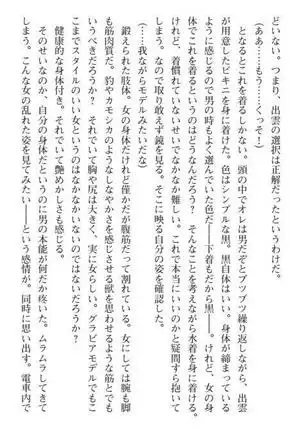 いだろう。つまり、出雲の選択は正解だったというわけだ。
（ああ……もう……くっそ！）
　となるとこれを着るしかない。頭の中でオレは男だぞとブツブツ繰り返しながら、出雲
が用意したビキニを身に着けた。色はシンプルな黒。黒自体はいい。身体が締まっている
ように感じるので男の時もよく選んでいた色だ──下着もだから黒──。けれど、女の身
体でこれを着るというのはどうなんだろう？　そんなことを考えながら水着を身に着ける。
けれど、着慣れていないせいでなかなか難しい。これで本当にいいのかと疑問すら抱いて
しまう。なので取り敢えず鏡を見る。そこに映る自分の姿を確認した。
（……我ながらモデルみたいだな）
　鍛えられた肢体。女の身体だけれど僅かだが腹筋だって割れている。女にしては腕も脚
も筋肉質だ。豹やカモシカのようなしなやかさを感じさせる獣を思わせるような筋とでも
いうべきだろうか？　それでいて胸や尻は大きく、実に女らしい。グラビアモデルでもこ
こまでスタイルのいい女というのはなかなかいないのではないだろうか？
　健康的な身体付き。それでいて艶めかしさも感じる。
　そのせいなのか、自分の身体だというのに男の本能が何だか疼いた。ムラムラしてきて
しまう。こんな女の乱れた姿を見てみたい──という感情が。同時に思い出す。電車内で